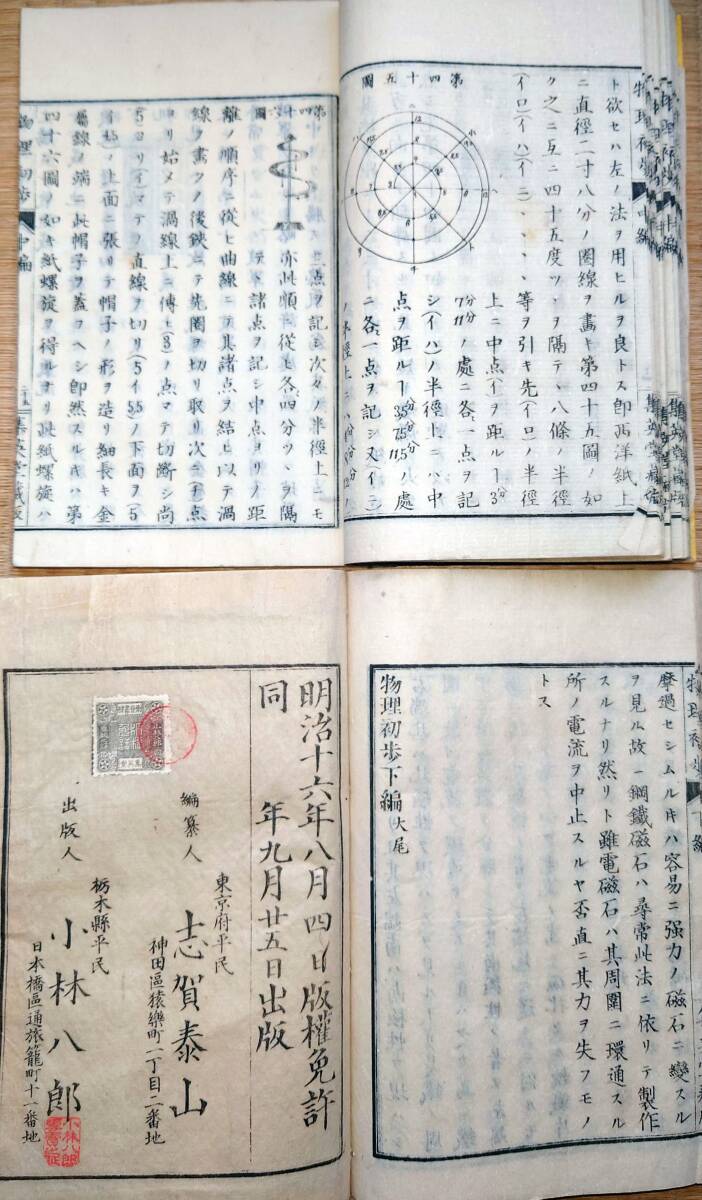 物理初歩 中編
ト欲セハ左ノ法ヲ用ヒルヲ良トス即西洋紙上
ニ直徑二寸八分ノ圏線ヲ畫キ第四十五圖ノ如
ク之ニ互ニ四十五度ツヽヲ隔テヽ八條ノ半徑
(イロ)(イハ)(イニ)、、、、
等ヲ引キ先(イロ)ノ半徑
上ニ中点(イ)ヲ距ルヿ3分
7分11分ノ處ニ各一点ヲ記
シ(イハ)ノ半徑上ニハ中
点ヲ距ルヿ3.5分7.5分11.5分ノ處
ニ各一点ヲ記シ又(イニ)
ノ半徑上ニハ
第四十五圖
三点ヲ記シ次々ノ半徑上ニモ
亦此順ニ從ヒ各四分ツヽヲ隔
テヽ諸点ヲ記シ中点ヨリノ距
離ノ順序ニ從ヒ曲線ニテ其諸点ヲ結ヒ以テ渦
線ヲ畫クノ後鋏ニテ先圏ヲ切リ取リ次ニ
点
ヨリ始メテ渦線上ニ傳ヒ(3)ノ点マテ切断シ尚
(5)ヨリ(イ)マテノ直線ヲ切リ(5イ55)ノ下面ヲ(5
イ45)ノ上面ニ張リテ帽子ノ形ヲ造リ細長キ金
屬線ノ端ニ此帽子ヲ蓋ヲヘシ即然スルキハ第
四十六圖ノ如キ紙螺旋ヲ得ルナリ此紙螺旋ハ
第四十六圖
物理初歩 中編
二十五 集英堂藏版
摩過セシムルキハ容易ニ强力ノ磁石ニ變スル
ヲ見ル故ニ鋼鐵磁石ハ尋常此法ニ依リテ製作
スルナリ然リト雖電磁石ハ其周圍ニ環通スル
所ノ電流ヲ中止スルヤ否直ニ其力ヲ失フモノ
トス
物理初歩下編大尾
明治十六年八月四日版權免許
同年九月廿五日出版
編纂人
東京府平民
志賀泰山
神田區猿樂町二丁目二番地
出版人
栃木縣平民
小林八郎
日本橋區通旅籠町十一番地